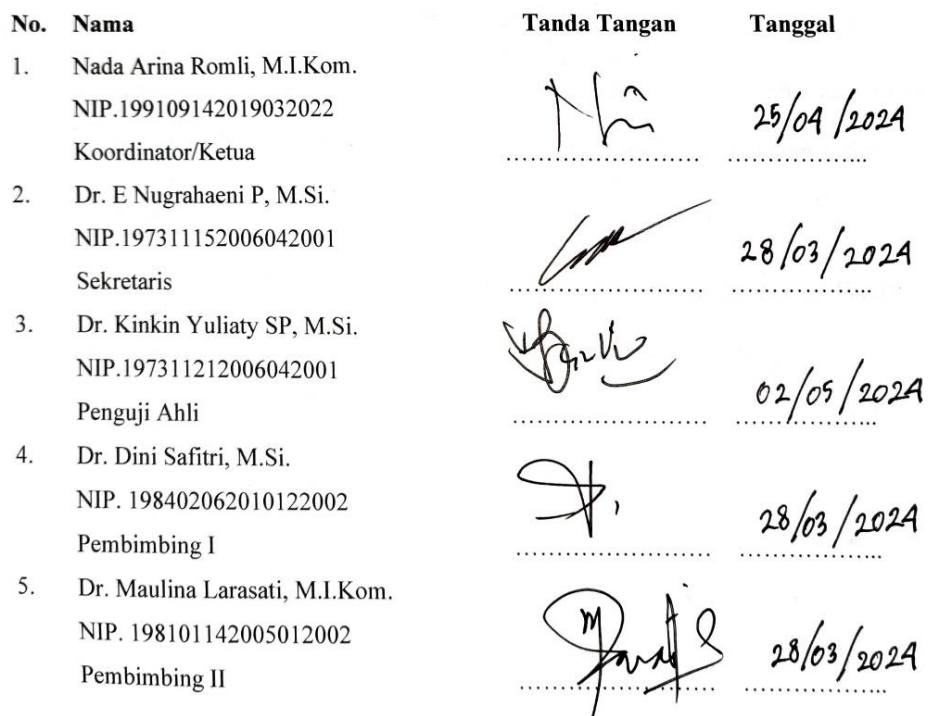 No. Nama Tanda Tangan Tanggal
1. Nada Arina Romli, M.I.Kom.
NIP.199109142019032022 25/04/2024
Koordinator/Ketua
2. Dr. E Nugrahaeni P, M.Si.
NIP.197311152006042001 28/03/2024
Sekretaris
3. Dr. Kinkin Yuliaty SP, M.Si.
NIP.197311212006042001
Penguji Ahli 02/05/2024
4. Dr. Dini Safitri, M.Si.
NIP. 198402062010122002 28/03/2024
Pembimbing I
5. Dr. Maulina Larasati, M.I.Kom.
NIP. 198101142005012002 28/03/2024
Pembimbing II